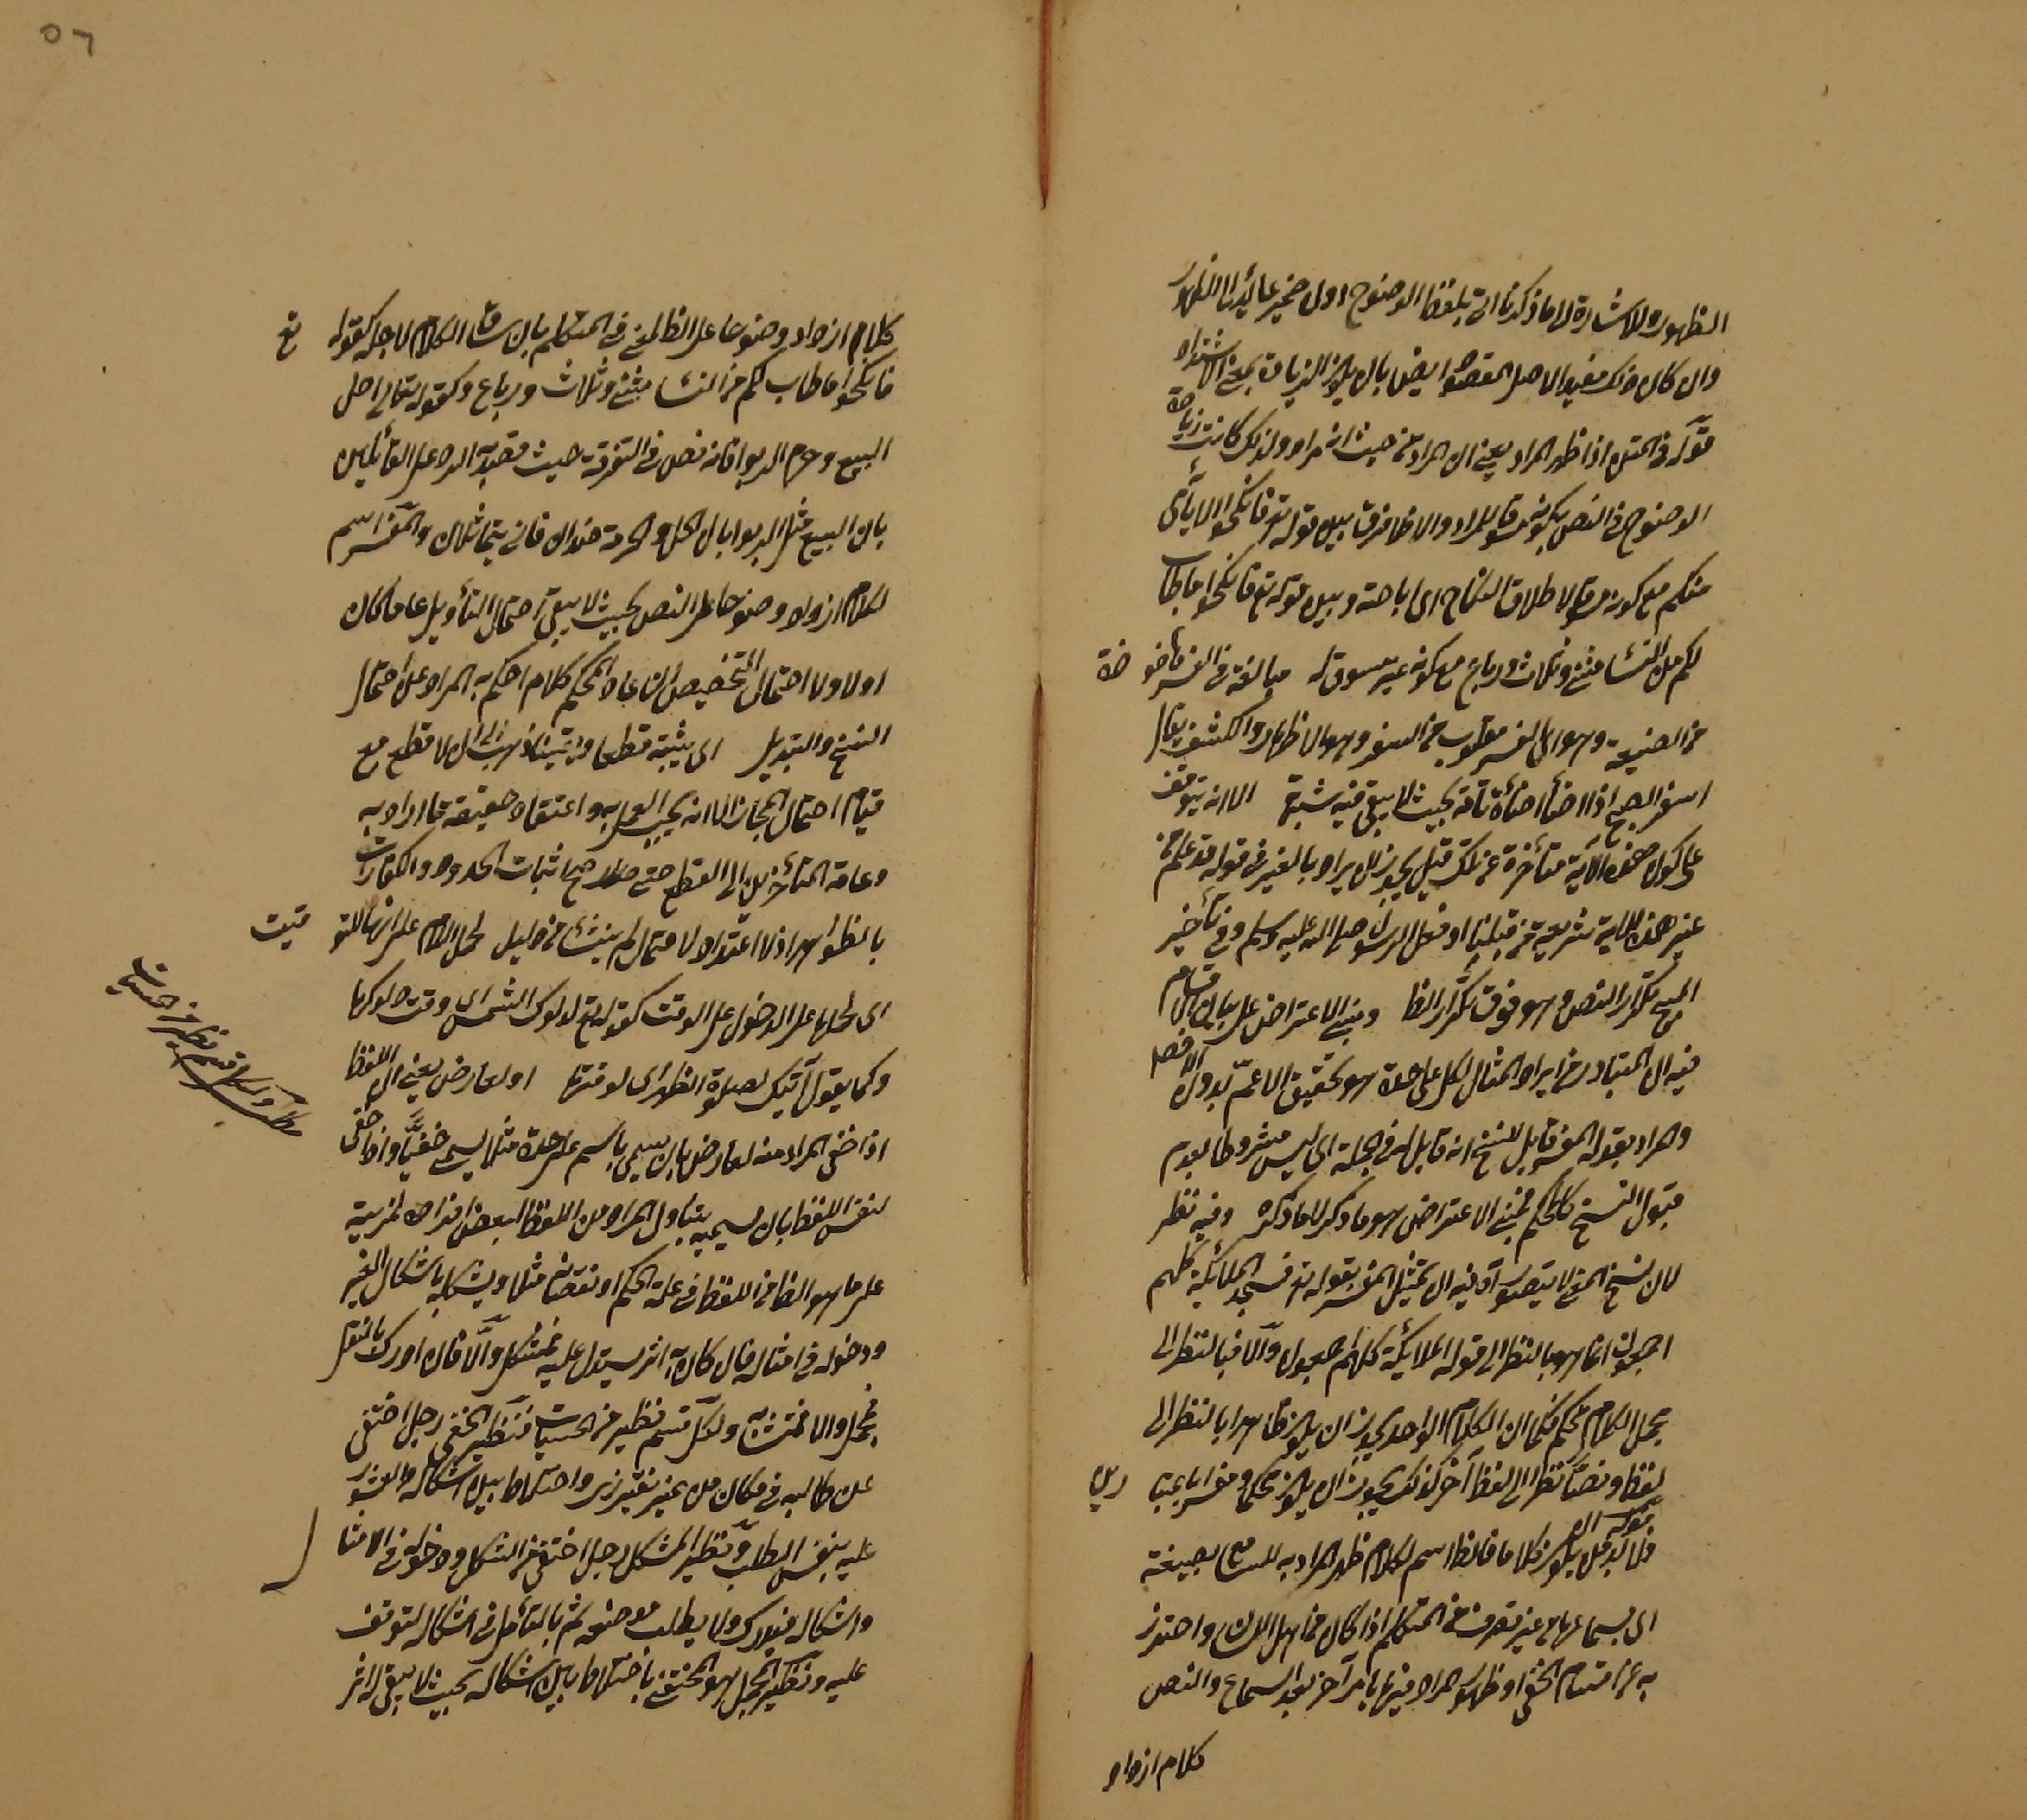 الظهور وللاشارة الى ما ذكرنا اتى بلفظ الوضوح اول ضمير عايد الى الظهور
وان كان ذلك مفيدا لاصل المقصود ايضا بان يكون الزيادة بمعنى الاشتداد
قوله في المتن اذا ظهر المراد يعني ان المراد من حيث انه مراد ولذلك كانت زيادة
الوضوح في النص بكونه مسوقا للمراد والا فلا فرق بين قوله تع فانكحوا الايامى
منكم مع كونه مسوقا لاطلاق النكاح اى اباحته وبين قوله تع فانكحوا ما طاب
لكم من النساء مثنى وثلاث ورباع مع كونه غير مسوق له مبالغة في الفسر ماخوذة
من الصيغة وهو اى الفسر مقلوب من السفر وهو الاظهار والكشف يقال
اسفر الصبح اذا اضاء اضاءة تامة بحيث لا يبقى فيه شبهة الا انه يتوقف
على كون هذه الآية متأخرة عن تلك قيل يجوز ان يراد بالغير في قوله قد علم من
غير هذه الآية شريعة من قبلنا او فعل الرسول صلى الله عليه وسلم وفي تأخير
المبيح تكرار النص وهو فوق تكرار الظا ومبنى الاعتراض على بيان اقسام
فيه ان المتبادر من ايراد المثال لكل على حدة هو تحقيق الاعم بدون الاخص
والمراد بقوله المفسر قابل للنسخ انه قابل له في الجملة اى ليس مشروطا بعدم
قبول النسخ كالمحكم فمبنى الاعتراض هو ما ذكر لا ما ذكره وفيه نظر
لان نسخ المعنى لا يتصور آه فيه ان تمثيل المفسر بقوله تع فسجد الملائكة كلهم
اجمعون انما هو بالنظر الى قوله الملائكة كلهم اجمعون والا فبالنظر الى
مجمل الكلام محكم فكما ان الكلام الواحد يجوز ان يكون ظاهرا بالنظر الى
لفظ ونصا نظرا الى لفظ آخر كذلك يجوز ان يكون محكما ومفسرا باعتبارين
قوله اه فلا بد من ان يكون كلاما فالظا اسم لكلام ظهر المراد به للسامع بصيغته
اى بسماعها من غير تصرف من المتكلم اذا كان من اهل اللسان واحترز
به عن اقسام الخفى اذ ظهور المراد فيها بامر آخر بعد السماع والنص
كلام ازداد
كلام ازداد وضوحا على الظا لمعنى في المتكلم بان ساق الكلام لاجله كقوله تع
فانكحوا ما طاب لكم من النساء مثنى وثلاث ورباع وكقوله تعالى احل
البيع وحرم الربوا فانه نص في التفرقة حيث قصد به الرد على القائلين
بان البيع مثل الربوا بان الحل والحرمة ضدان فانى يتماثلان والمفسر اسم
لكلام ازداد وضوحا على النص بحيث لا يبقى احتمال التأويل عاما كان
اولا ولا احتمال التخصيص ان عاما والمحكم كلام احكم به المراد عن احتمال
النسخ والتبديل اى يثبته قطعا ويقينا ذهب الى ان لا قطع مع
قيام احتمال المجاز الا انه يجب العمل به واعتقاد حقيقة ما اراد به
وعامة المتأخرين الى القطع حتى صح اثبات الحدود والكفارات
بالظواهر اذ لا اعتداد لاحتمال لم ينشأ من دليل لحمل اللام على انها للتوقيت
اى لحملها على الدخول على الوقت كقوله تع لدلوك الشمس اى وقت دلوكها
وكما يقول آتيك لصلوة الظهر اى لوقتها او لعارض يعني ان اللفظ
اذا خفى المراد منه لعارض بان يسمى باسم على حدة مثلا يسمى خفيا واذا خفى
لنفس اللفظ بان يسميه يتناول المراد من اللفظ البعض افراده لمزيته
على ما هو الظا من اللفظ في علة الحكم او نقصانه مثلا ويشكل به باشكال الغير
ودخوله في امثاله فان كان به اثر يستدل عليه فمشكل والا فان ادرك بالنقل
فمجمل والا فمتشابه ولكل قسم نظير من الحسيات فنظير الخفى رجل اختفى
عن طالبه في مكان من غير تغيير زى واختلاط بين اشكاله والعثور
عليه بنفس الطلب ونظير المشكل رجل اختفى من الشكل ودخوله في الامثال
واشكاله فيدرك ولا يطلب موضعه ثم بالتأمل في اشكاله لتوقف
عليه ونظير المجمل هو المختفى باختلاط بين اشكاله بحيث لا يبقى له اثر
قسم نظير من الحسيات